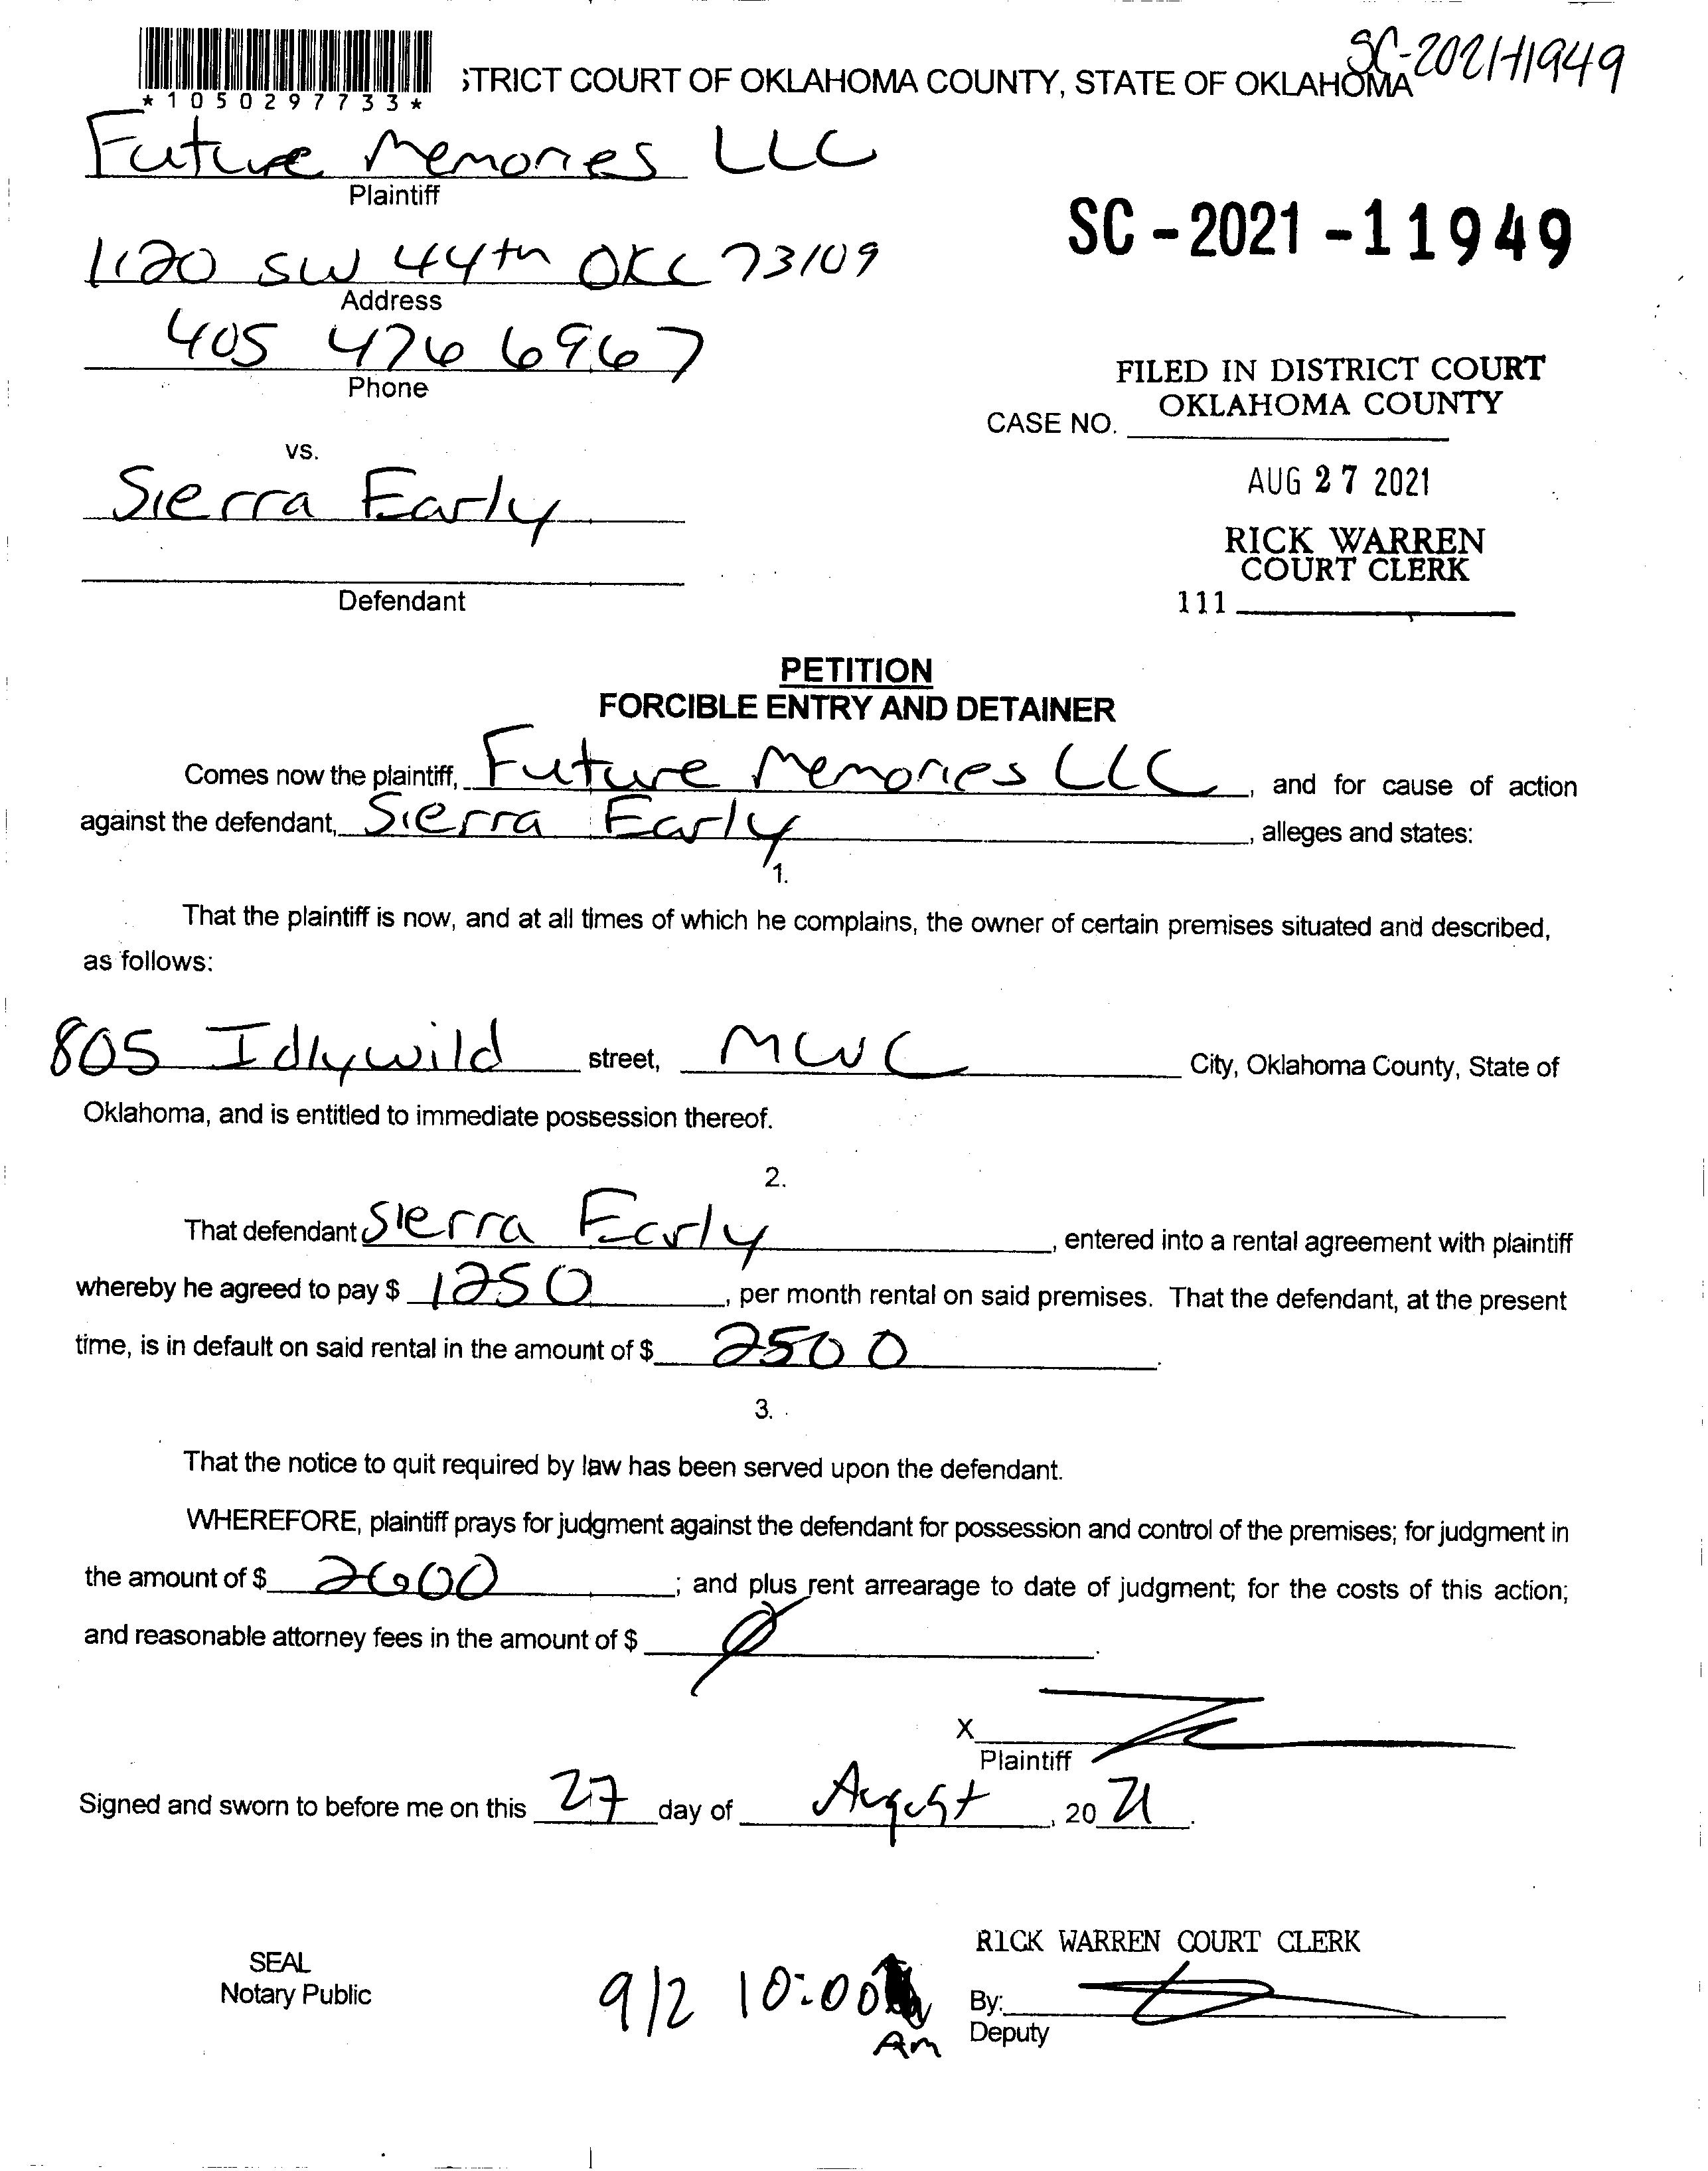 SC-2021-11949
*1050297733*
STRICT COURT OF OKLAHOMA COUNTY, STATE OF OKLAHOMA
Future Memories LLC
Plaintiff
SC-2021-11949
1120 SW 44th OKC 73109
Address
405 476 6967
Phone
FILED IN DISTRICT COURT
OKLAHOMA COUNTY
CASE NO.
vs.
AUG 27 2021
Sierra Early
RICK WARREN
COURT CLERK
Defendant
111
PETITION
FORCIBLE ENTRY AND DETAINER
Comes now the plaintiff, Future Memories LLC, and for cause of action
against the defendant, Sierra Early, alleges and states:
1.
That the plaintiff is now, and at all times of which he complains, the owner of certain premises situated and described,
as follows:
805 Idlywild street, MWC City, Oklahoma County, State of
Oklahoma, and is entitled to immediate possession thereof.
2.
That defendant Sierra Early, entered into a rental agreement with plaintiff
whereby he agreed to pay $ 1250, per month rental on said premises. That the defendant, at the present
time, is in default on said rental in the amount of $ 2500.
3.
That the notice to quit required by law has been served upon the defendant.
WHEREFORE, plaintiff prays for judgment against the defendant for possession and control of the premises; for judgment in
the amount of $ 2600; and plus rent arrearage to date of judgment; for the costs of this action;
and reasonable attorney fees in the amount of $ Ø.
X
Plaintiff
Signed and sworn to before me on this 27 day of August, 2021.
RICK WARREN COURT CLERK
SEAL
Notary Public
9/2 10:00 Am
By:
Deputy